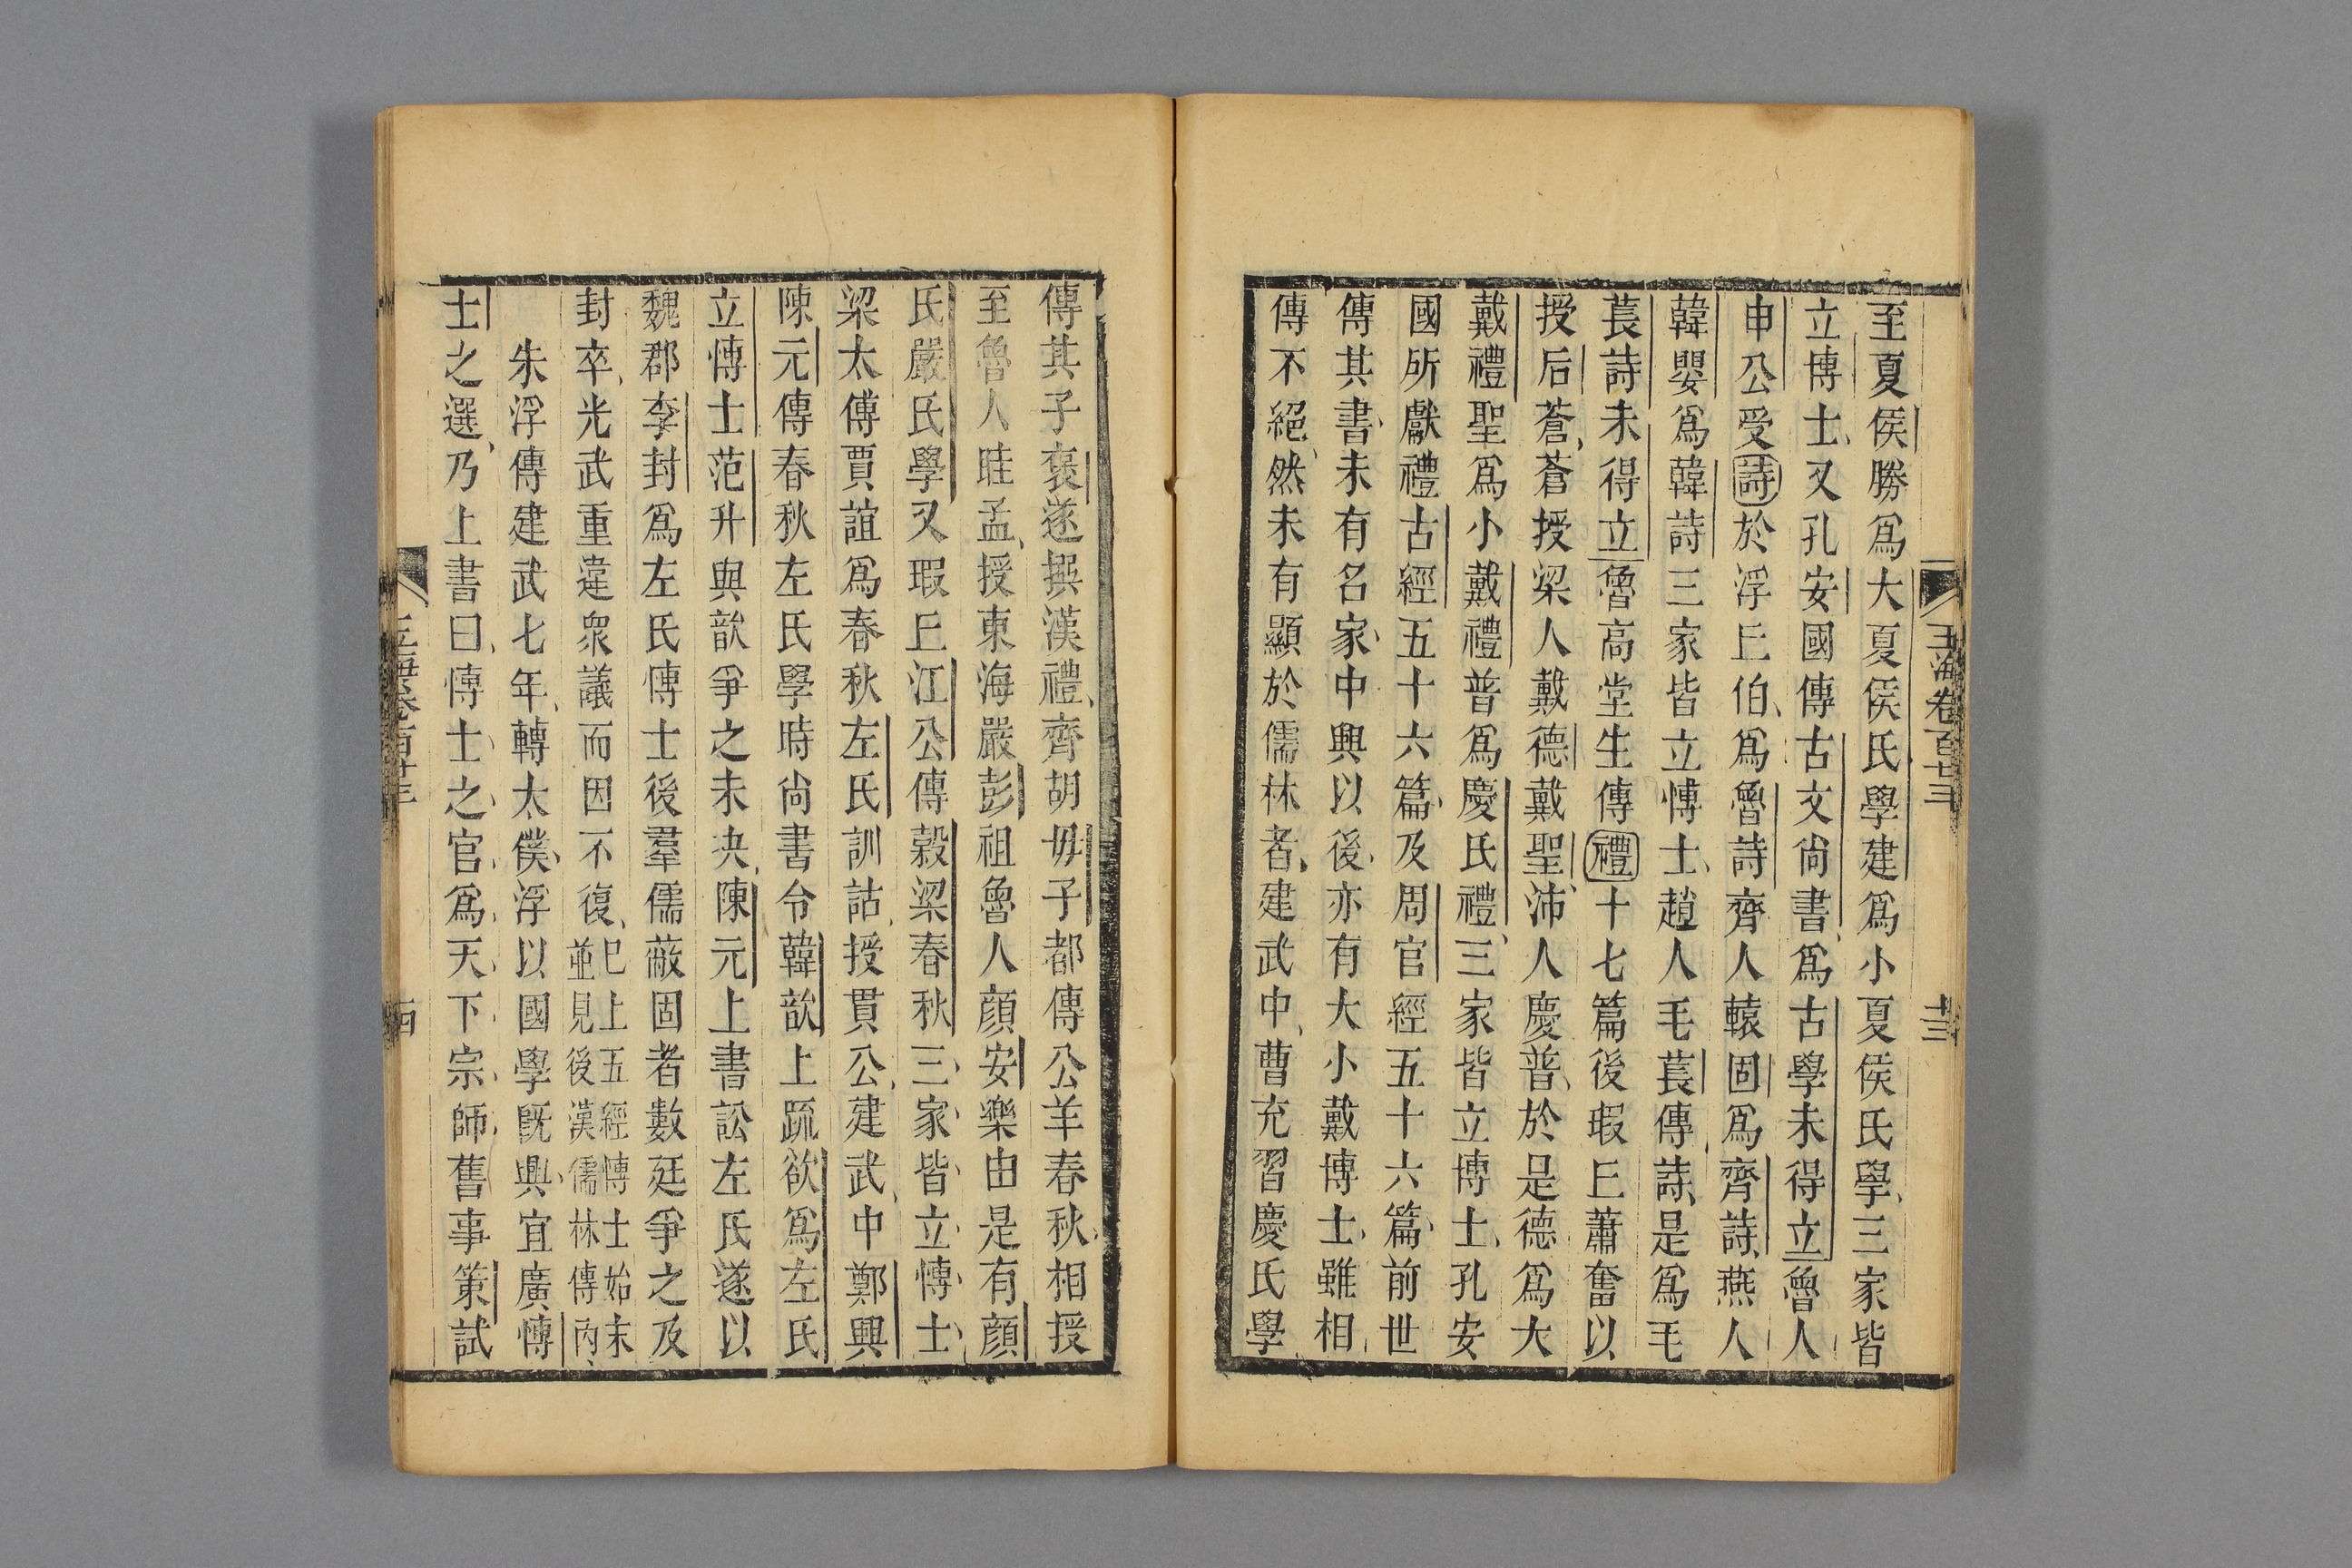 玉海卷百廿三
十三
至夏侯勝爲大夏侯氏學建爲小夏侯氏學三家皆
立博士又孔安國傳古文尙書爲古學未得立魯人
申公受詩於浮丘伯爲魯詩齊人轅固爲齊詩燕人
韓嬰爲韓詩三家皆立博士趙人毛萇傳詩是爲毛
萇詩未得立魯高堂生傳禮十七篇後瑕丘蕭奮以
授后蒼蒼授梁人戴德戴聖沛人慶普於是德爲大
戴禮聖爲小戴禮普爲慶氏禮三家皆立博士孔安
國所獻禮古經五十六篇及周官經五十六篇前世
傳其書未有名家中興以後亦有大小戴博士雖相
傳不絕然未有顯於儒林者建武中曹充習慶氏學
傳其子褒遂撰漢禮齊胡毋子都傳公羊春秋相授
至魯人眭孟授東海嚴彭祖魯人顔安樂由是有顔
氏嚴氏學又瑕丘江公傳穀梁春秋三家皆立博士
梁太傅賈誼爲春秋左氏訓詁授貫公建武中鄭興
陳元傳春秋左氏學時尙書令韓歆上疏欲爲左氏
立博士范升與歆爭之未决陳元上書訟左氏遂以
魏郡李封爲左氏博士後羣儒蔽固者數廷爭之及
封卒光武重違衆議而因不復巳上五經博士始末
並見後漢儒林傳內
朱浮傳建武七年轉太僕浮以國學旣興宜廣博
士之選乃上書曰博士之官爲天下宗師舊事策試
玉海卷百廿三
十四